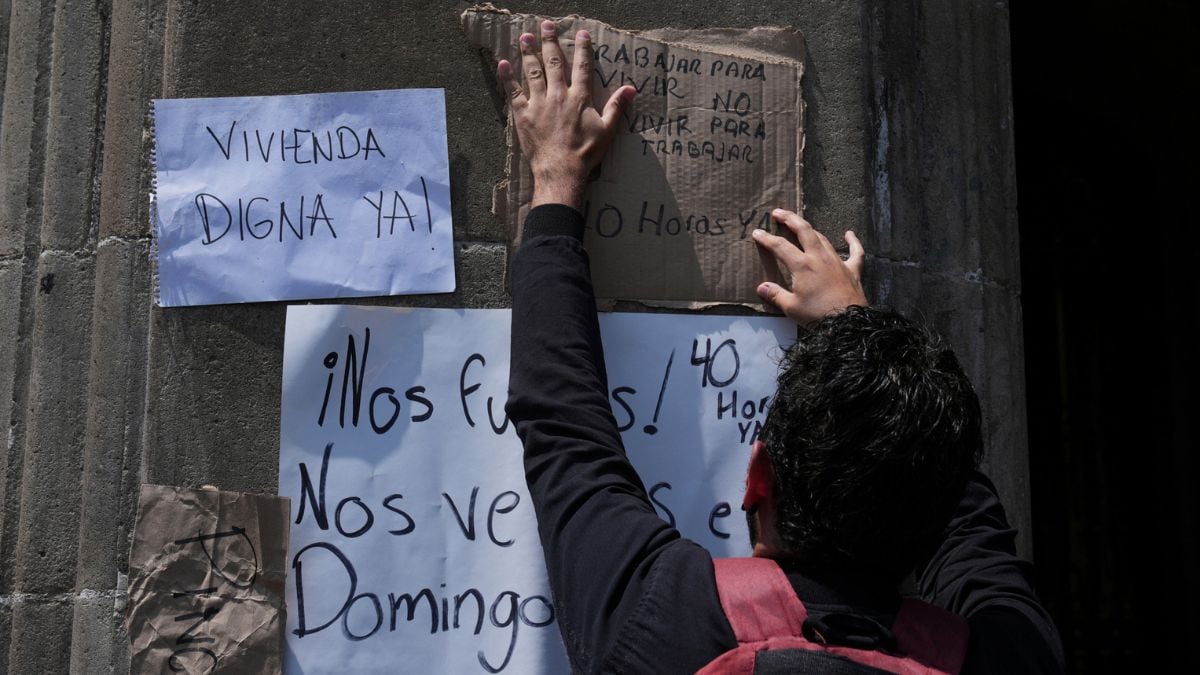 VIVIENDA
DIGNA YA!
TRABAJAR PARA
VIVIR NO
VIVIR PARA
TRABAJAR
40 Horas YA
¡Nos !
40
YA
Nos
Domingo